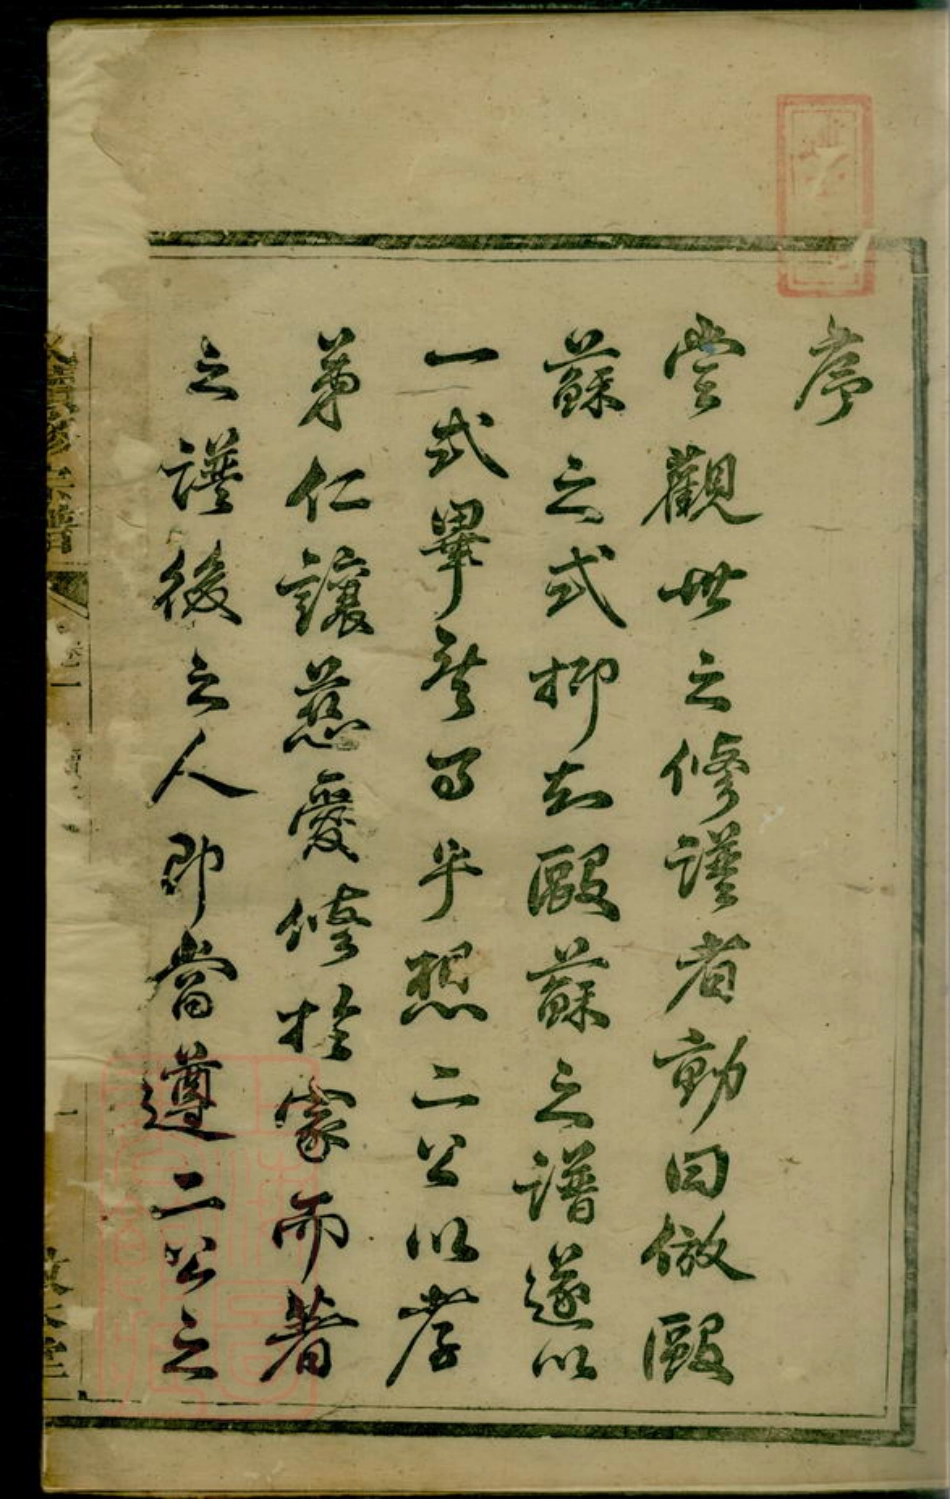 序
嘗觀世之修譜者動曰倣歐
蘇之式抑知歐蘇之譜遂以
一式畢乃事乎想二公以孝
弟仁讓慈愛修於家而著
之譜後之人即當遵二公之
續修宗譜
卷一